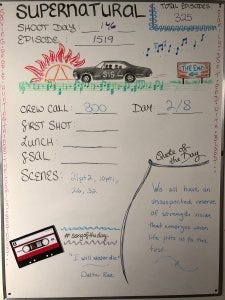 SUPERNATURAL
TOTAL EPISODES:
325
SHOOT DAY: 146
EPISODE: 1519
THE END
CREW CALL: 800 DAY: 2/8
FIRST SHOT:
LUNCH:
GSAL:
SCENES: 21pt2, 10pt1,
26, 32
Quote of
the Day
We all have an
unsuspected reserve
of strength inside
that emerges when
life puts us to the
test.
#songoftheday
"I will never die"
Delta Rae